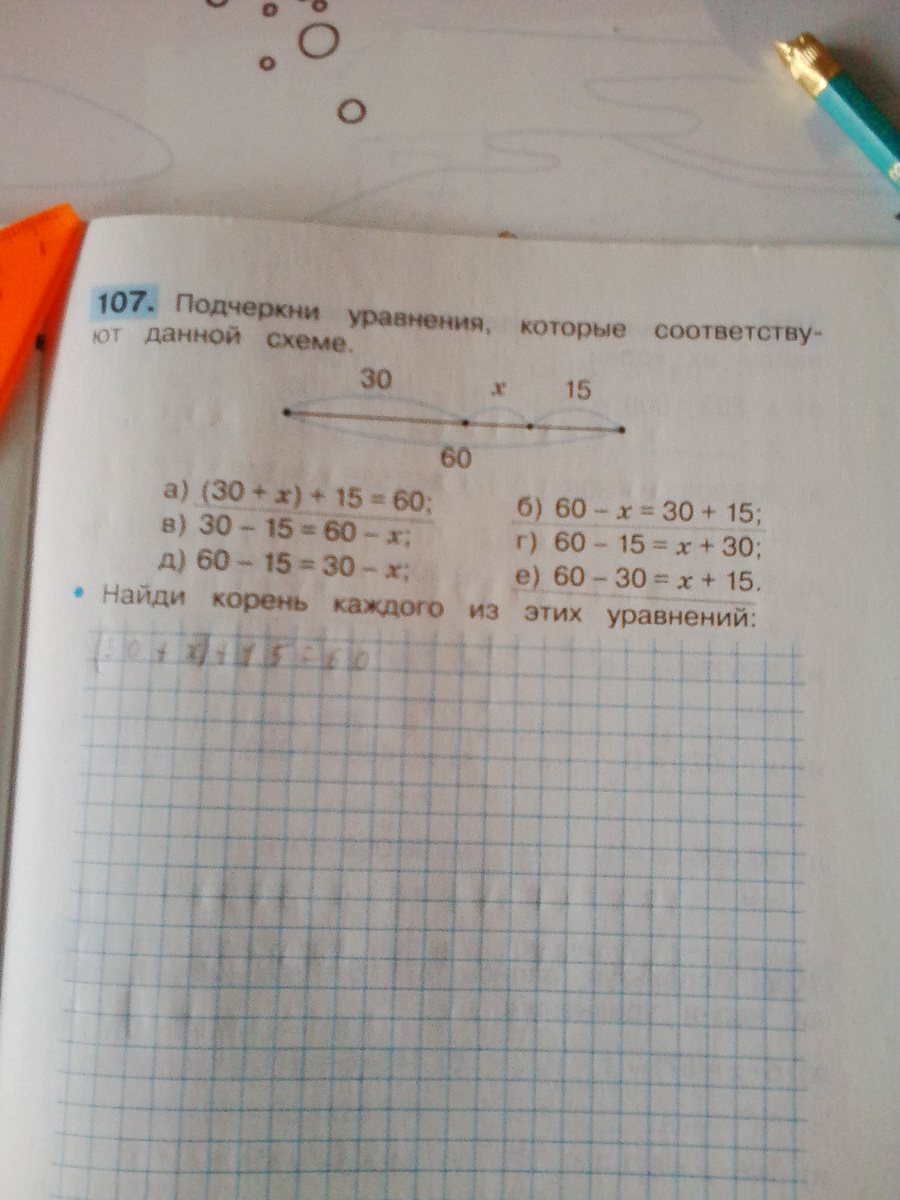 107. Подчеркни уравнения, которые соответству-
ют данной схеме.
30 x 15
60
а) (30 + x) + 15 = 60; б) 60 – x = 30 + 15;
в) 30 – 15 = 60 – x; г) 60 – 15 = x + 30;
д) 60 – 15 = 30 – x; е) 60 – 30 = x + 15.
• Найди корень каждого из этих уравнений:
(30 + x) + 15 = 60